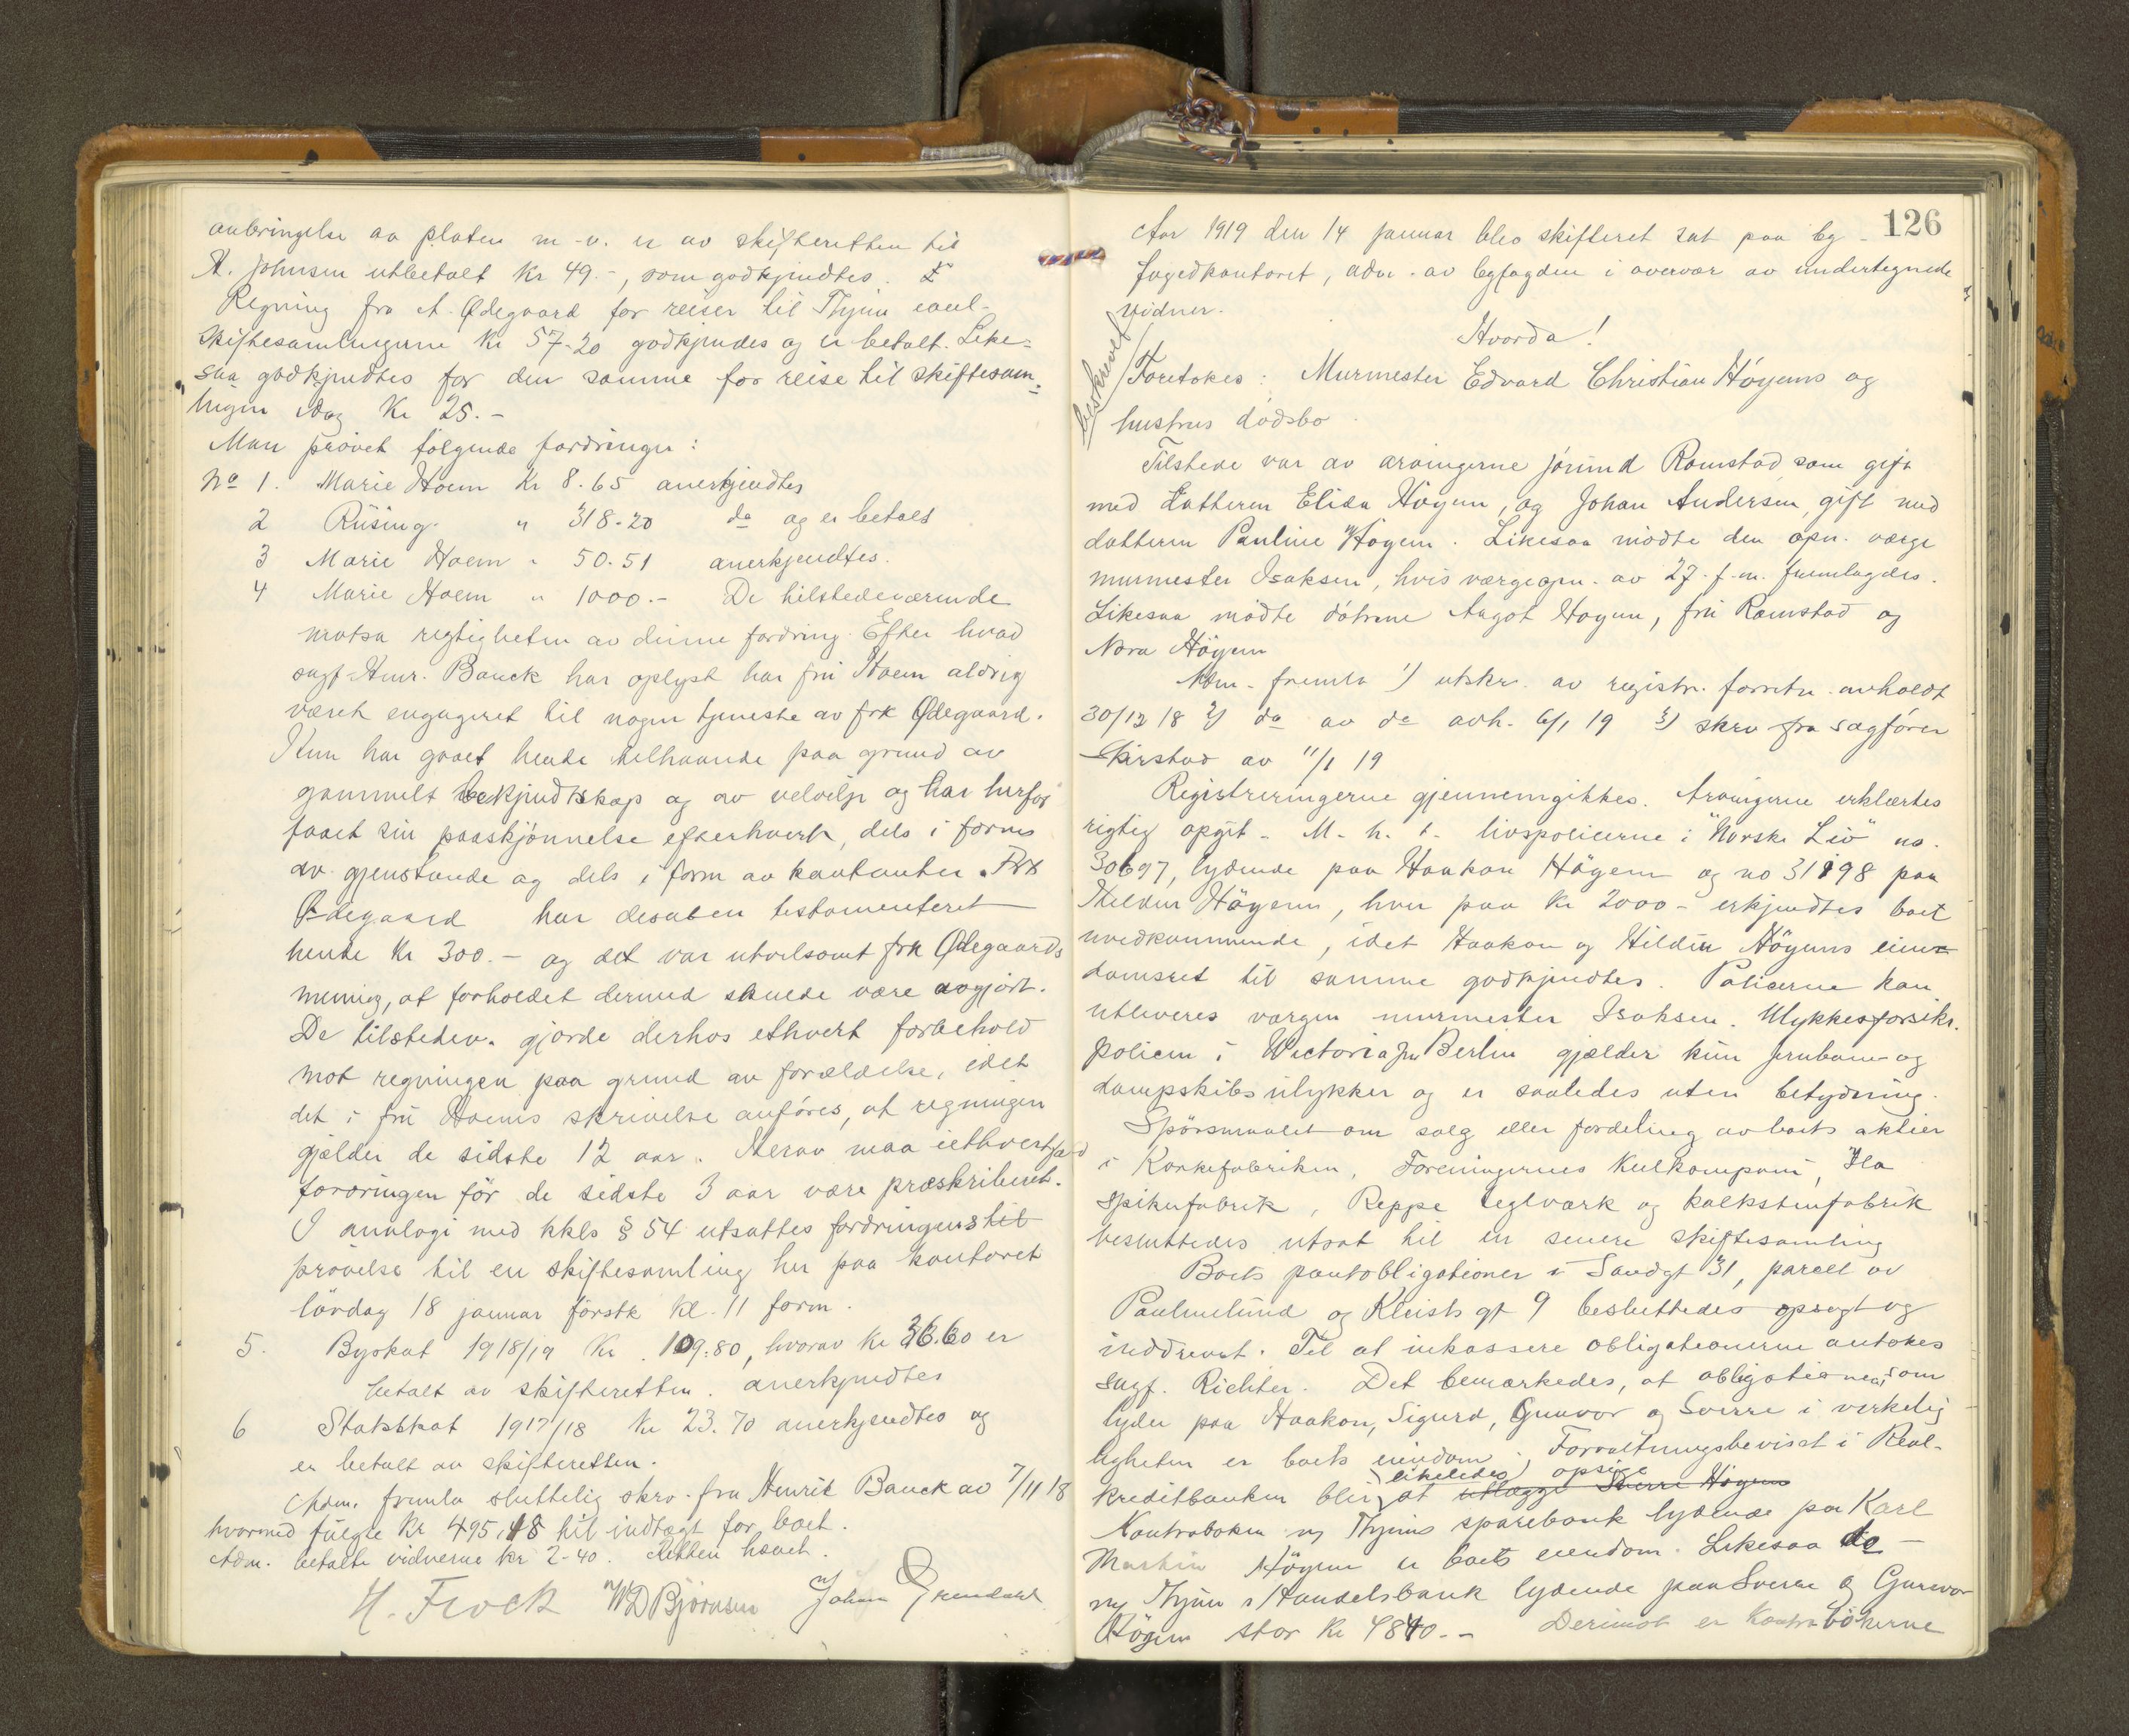 anbringelse av platen m.v. er av skifteretten til
A. Johnsen utbetalt kr 49.-, som godkjendtes.
Regning fra A. Ødegaard for reiser til Thjem
skiftesamlingerne kr 57-20 godkjendes og er betalt. Like-
saa godkjendtes for den samme for reise til skiftesam-
lingen idag kr 25.-
Man prøvet følgende fordringer:
No 1. Marie Hoem kr 8.65 anerkjendtes
2 Rüsing " 318-20 do og er betalt
3 Marie Hoem " 50.51 anerkjendtes.
4 Marie Hoem " 1000.- De tilstedeværende
motsa regtigheten av denne fordring. Efter hvad
sagf. Henr. Bauck har oplyst har fru Hoem aldrig
været engageret til nogen tjeneste av frk Ødegaard.
Hun har gaaet hende tilhaande paa grund av
gammelt bekjendtskap og av velvilje og har herfor
faaet sin paaskjønnelse efterhvert, dels i form
av gjenstande og dels i form av kontanter. Frk
Ødegaard har desuten testamenteret
hende kr 300.- og det var utvilsomt frk Ødegaards
mening, at forholdet dermed skulde være avgjort.
De tilstedev. gjorde derhos ethvert forbehold
mot regningen paa grund av forældelse, idet
det i fru Hoems skrivelse anføres, at regningen
gjælder de sidste 12 aar. Herav maa iethvertfald
fordringen før de sidste 3 aar være præskriberet.
I analogi med kkls § 54 utsattes fordringens
prøvelse til en skiftesamling her paa kontoret
lørdag 18 januar førstk kl. 11 form.
5. Byskat 1918/19 kr 109.80, hvorav kr 36.60 er
betalt av skifteretten. anerkjendtes
6 Statsskat 1917/18 kr 23.70 anerkjendtes og
er betalt av skifteretten.
Adm. fremla sluttelig skrv. fra Henrik Bauck av 7/11 18
hvormed fulgte kr 495,48 til indtægt for boet.
Adm. betalte vidnerne kr 2-40. Retten hævet.
H. Frock W D Bjørnsen Johan Grendahl
126
Aar 1919 den 14 januar blev skifteret sat paa by-
fogedkontoret, adm. av byfogden i overvær av undertegnede
vidner.
Hvorda!
beskrevet
Foretokes: Murmester Edvard Christian Høyems og
hustrus dødsbo.
Tilstede var av arvingerne Jørund Ramstad som gift
med datteren Elida Høyem, og Johan Andersen, gift med
datteren Pauline Høyem. Likesaa mødte den opn. værge
murmester Isaksen, hvis værgeopn. av 27. f.m. fremlagdes.
Likesaa mødte døtrene Aagot Høyem, fru Ramstad og
Nora Høyem
Adm. fremla 1) utskr. av registr. forretn. avholdt
30/12 18 2) do av do avh. 6/1 19 3) skrv fra sagfører
Skirstad av 11/1 19
Registreringerne gjennemgikkes. Arvingerne erklærtes
rigtig opgit. M.h.t. livspolicerne i "Norske Liv" no.
30697, lydende paa Haakon Høyem og no 31898 paa
Hildur Høyem, hver paa kr 2000- erkjendtes boet
uvedkommende, idet Haakon og Hildur Høyems eien-
domsret til samme godkjendtes. Policerne kan
utleveres værgen murmester Isaksen. Ulykkesforsikr.
policen i Victoria fra Berlin gjælder kun jernbane og
dampskibsulykker og er saaledes uten betydning.
Spørsmaalet om salg eller fordeling av boets aktier
i Korkefabriken, Foreningernes Kulkompani, Ila
Spikerfabrik, Reppe teglværk og kalkstenfabrik
besluttedes utsat til en senere skiftesamling
Boets pantobligationer i Sandgt 31, parcel av
Paulinelund og Kleists gt 9 besluttedes opsagt og
inddrevet. Til at inkassere obligationerne antokes
sagf. Richter. Det bemærkedes, at obligationer, som
lyder paa Haakon, Sigurd, Gunvor og Sverre i virkelig
ligheten er boets eiendom. Forvaltningsbeviset i Real-
kreditbanken blir likeledes at opsige utlægge Sverre Høyem
Kontraboken n/ Thjems sparebank lydende paa Karl
Martin Høyem er boets eiendom. Likesaa do
n/ Thjems Handelsbank lydende paa Sverre og Gunvor
Høyem stor kr 4840.- Derimot er kontrabøkerne